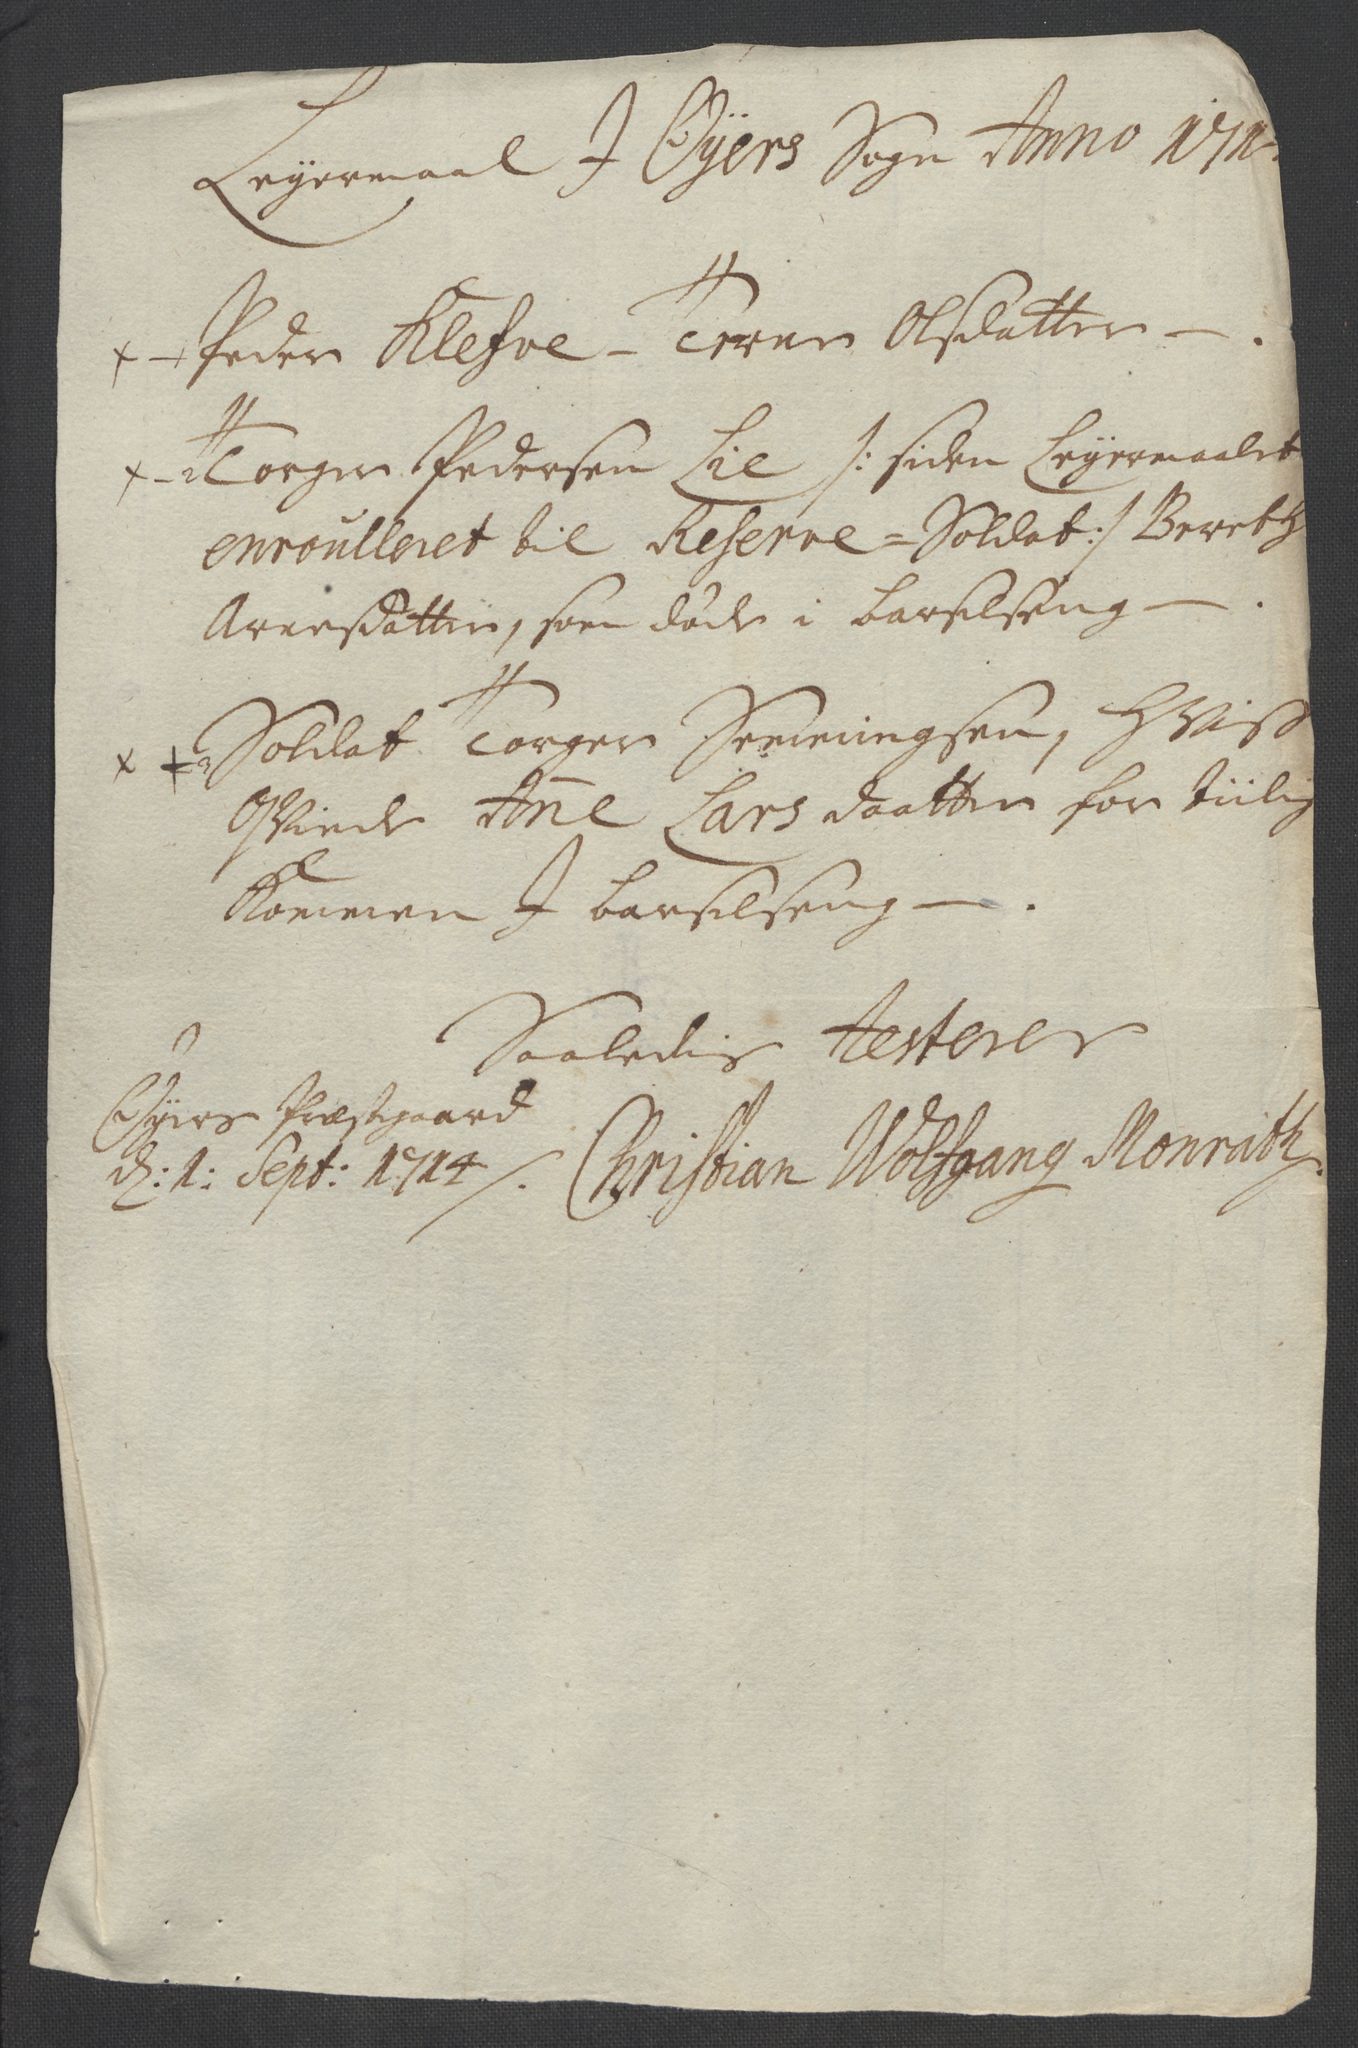 Leyermaal J Øyers Sogn Anno 171
Peder Klefve - Toren Olsdatter - .
Torger Pedersen Lie /: siden Leyermaalet
enroulleret til Reserve=Soldat :/ Bereth
Arnesdatter, som døde i barselseng - .
Soldat Torger Semmingsen, hvis
Qvinde Añe Lars daatter for tiilig
Kommen J barselseng - .
Saaledis Testerer
Øyers Præstgaard
d: 1: Sept: 1714 /. Christian Wolfgang Monrath.